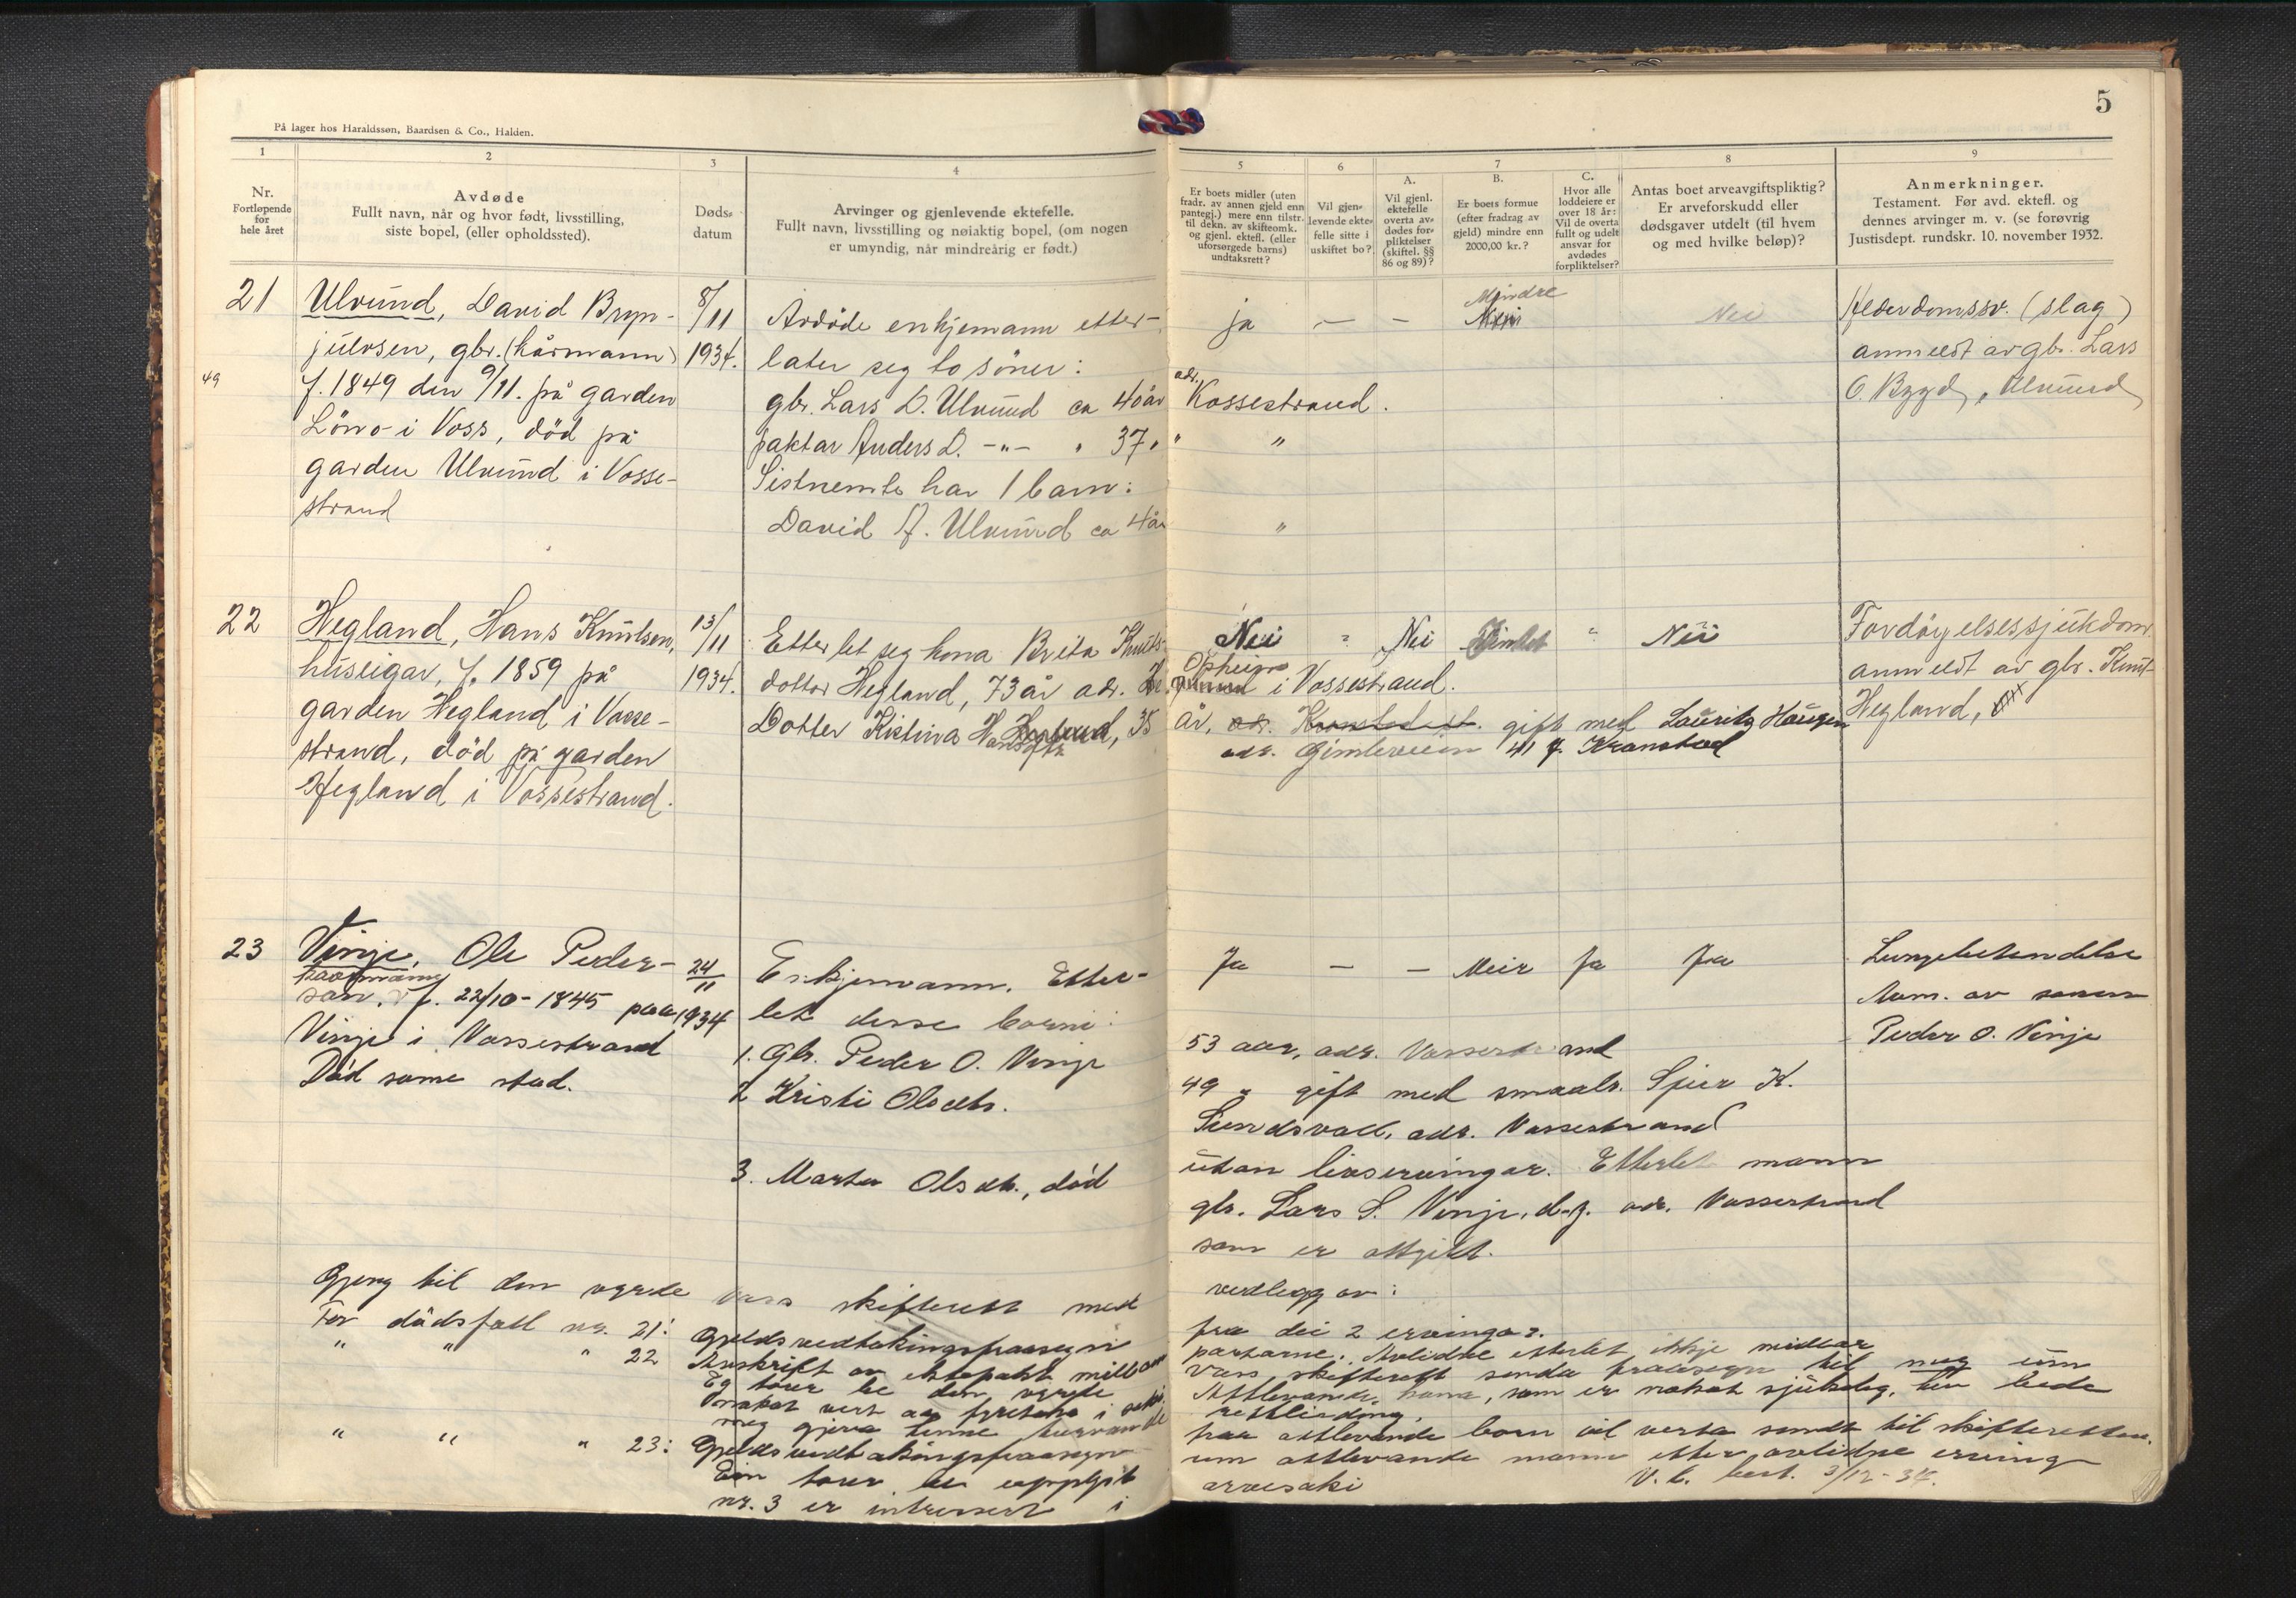 5
På lager hos Haraldssøn, Baardsen & Co., Halden.
1
2
3
4
5
6
7
8
9
Nr.
Fortløpende
for
hele året
Avdøde
Fullt navn, når og hvor født, livsstilling,
siste bopel, (eller opholdssted).
Døds-
datum
Arvinger og gjenlevende ektefelle.
Fullt navn, livsstilling og nøiaktig bopel, (om nogen
er umyndig, når mindreårig er født.)
Er boets midler (uten
fradr. av annen gjeld enn
pantegj.) mere enn tilstr.
til dekn. av skifteomk.
og gjenl. ektefl. (eller
uforsørgede barns)
undtaksrett?
Vil gjen-
levende ekte-
felle sitte i
uskiftet bo?
A.
Vil gjenl.
ektefelle
overta av-
dødes for-
pliktelser
(skiftel. §§
86 og 89)?
B.
Er boets formue
(efter fradrag av
gjeld) mindre enn
2000,00 kr.?
C.
Hvor alle
loddeiere er
over 18 år:
Vil de overta
fullt og udelt
ansvar for
avdødes
forpliktelser?
Antas boet arveavgiftspliktig?
Er arveforskudd eller
dødsgaver utdelt (til hvem
og med hvilke beløp)?
Anmerkninger.
Testament. Før avd. ektefl. og
dennes arvinger m. v. (se forøvrig
Justisdept. rundskr. 10. november 1932.
21
49
Ulvund, David Bryn-
julvsen, gbr. (kårmann)
f. 1849 den 9/11. på garden
Löno i Voss, död på
garden Ulvund i Vosse-
strand
8/11
1934.
Avdöde enkjemann etter-
later seg to söner:
gbr. Lars D. Ulvund ca 40 år
faktor Anders D. -"- " 37 "
Sistnemte har 1 barn:
David A. Ulvund ca 4 år
ja — —
Mindre
Nei
adr. Vossestrand.
" "
"
Alderdomssv. (slag)
anmeldt av gbr. Lars
O. Bygd, Ulvund
22
Hegland, Hans Knutsen,
huseigar, f. 1859 på
garden Hegland i Vosse-
strand, död på garden
Hegland i Vossestrand.
13/11
1934.
Etterlet seg kona Brita Knuts-
dotter Hegland, 73 år adr.
Dotter Kistina Hansdtr, 35
Nei " Nei " Nei
Opheim i Vossestrand.
år, adr. gift med Lauritz Haugen
adr. Gimleveien 41 Kr.sand
Fordöyelsessjukdom
anmeldt av gbr. Knut
Hegland,
23
Vinje, Ole Peder-
kaarmann
son, f. 22/10-1845 paa
Vinje i Vossestrand
Död same stad.
24/11
1934
Enkjemann. Etter-
let desse borni:
1. Gbr. Peder O. Vinje
2 Kristi Olsdtr.
3. Marta Olsdtr., död
Ja — — Meir Ja Ja
53 aar, adr. Vossestrand
49 " gift med smaabr. Sjur K.
Sundsvall, adr. Vossestrand
utan livservingar. Etterlet mann
gbr. Lars S. Vinje, d.y. adr. Vossestrand
som er attgift.
Lungebetendelse
Anm. av sonen
Peder O. Vinje
Gjeng til den vyrde Voss skifterett med
vedlegg av:
For dödsfall nr. 21: Gjeldsvedtakingsfraasegn
fra dei 2 ervingar.
" " " 22 Avskrift av ektepakt millom
partarne. Avlidne etterlet ikkje midlar
Eg torer be den vyrde
Voss skifterett senda fraasegn til meg um
Attlevande kona, som er nokot sjukeleg, ber bede
meg gjera denne
rettleiding.
" " " 23: Gjeldsvedtakingsfraasegn
fraa attlevande born vil verta sendt til skifteretten.
Ein torer be uppgit um attlevande mann etter avlidne erving
nr. 3 er interessert i
arvesaki
V. l. best. 3/12-34.